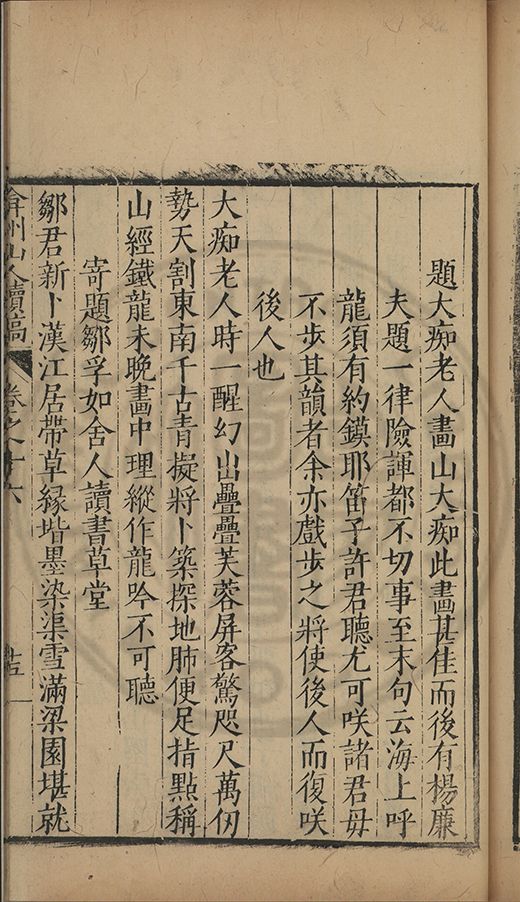 題大痴老人畫山大痴此畫甚佳而後有楊廉
夫題一律險諢都不切事至末句云海上呼
龍須有約鏌耶笛子許君聽尤可咲諸君毋
不步其韻者余亦戲步之將使後人而復咲
後人也
大痴老人時一醒幻出疊疊芙蓉屏客驚咫尺萬仞
勢天割東南千古青擬將卜築探地肺便足指點稱
山經鐵龍未晚畫中理縱作龍吟不可聽
寄題鄒孚如舍人讀書草堂
鄒君新卜漢江居帶草緣堦墨染渠雪滿梁園堪就
弇州山人續稿 卷之十六